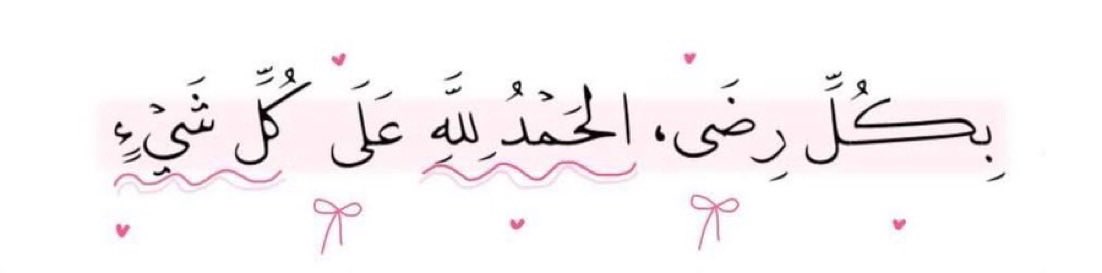 بِكُلِّ رِضَى، الحَمْدُ لِلَّهِ عَلَى كُلِّ شَيْءٍ